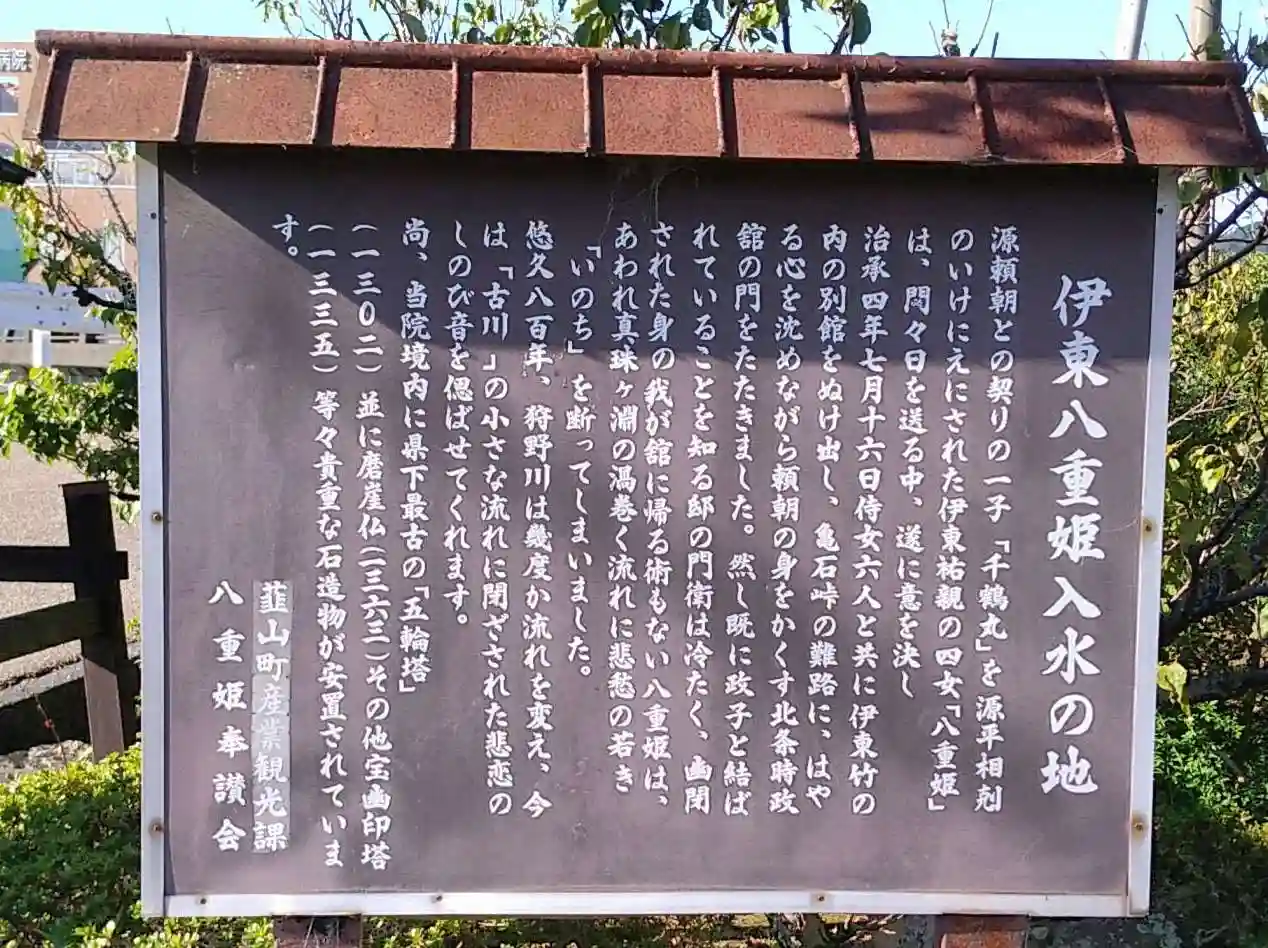 伊東八重姫入水の地
源頼朝との契りの一子「千鶴丸」を源平相剋
のいけにえにされた伊東祐親の四女「八重姫」
は、悶々日を送る中、遂に意を決し
治承四年七月十六日侍女六人と共に伊東竹の
内の別館をぬけ出し、亀石峠の難路に、はや
る心を沈めながら頼朝の身をかくす北条時政
舘の門をたたきました。然し既に政子と結ば
れていることを知る邸の門衛は冷たく、幽閉
された身の我が舘に帰る術もない八重姫は、
あわれ真珠ヶ淵の渦巻く流れに悲愁の若き
「いのち」を断ってしまいました。
悠久八百年、狩野川は幾度か流れを変え、今
は「古川」の小さな流れに閉ざされた悲恋の
しのび音を偲ばせてくれます。
尚、当院境内に県下最古の「五輪塔」
(一三〇二)並に磨崖仏(一三六三)その他宝幽印塔
(一三三五)等々貴重な石造物が安置されていま
す。
韮山町産業観光課
八重姫奉讃会
病院